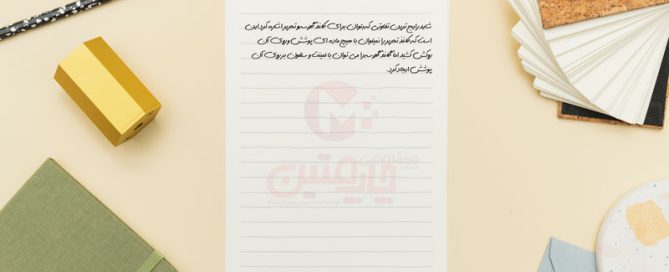 شاید رایج ترین تفاوتی که بتوان برای کاغذ گلاسه و تحریر اشاره کرد این
است که کاغذ تحریر را نمیتوان با هیچ ماده ای پوشش و روی آن
روکش کشید اما کاغذ گلاسه را می توان با لمینت و سلفون بر روی آن
پوشش ایجاد کرد.
چاپ متین